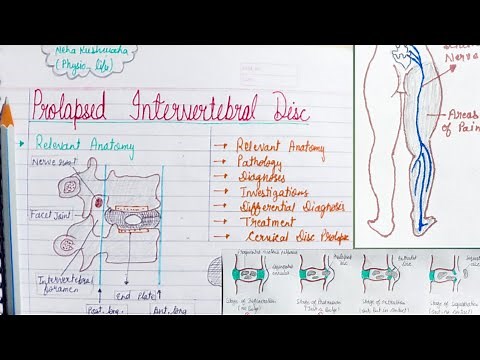 Neha Kushwaha
(Physio. life)
Prolapsed Intervertebral Disc
Relevant Anatomy
Nerve root
Facet Joint
Intervertebral
foramen
End Plate
Post. long.
Ant. long
→ Relevant Anatomy
→ Pathology
→ Diagnoses
→ Investigations
→ Differential Diagnoses
→ Treatment
→ Cervical Disc Prolapse
Nerve
Areas
of Pain
Stage of
Stage of Protrusion
Stage of
Stage of